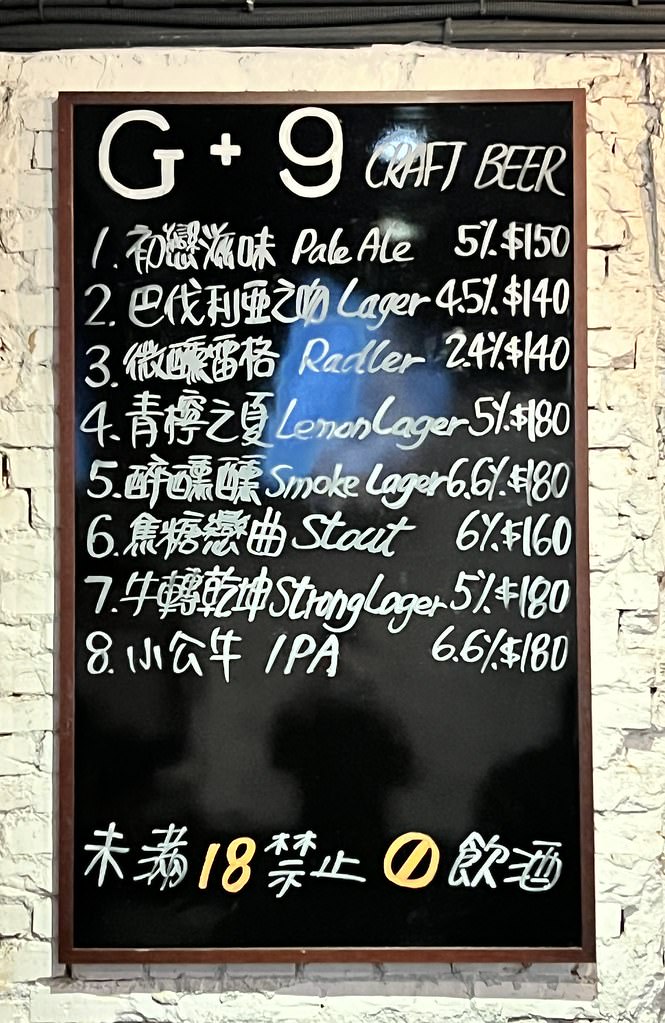 G+9 CRAFT BEER
1. 初戀滋味 Pale Ale 5% $150
2. 巴伐利亞之吻 Lager 4.5% $140
3. 微醺雷格 Radler 2.4% $140
4. 青檸之夏 Lemon Lager 5% $180
5. 醉醺醺 Smoke Lager 6.6% $180
6. 焦糖戀曲 Stout 6% $160
7. 牛轉乾坤 Strong Lager 5% $180
8. 小公牛 IPA 6.6% $180
未滿18禁止 飲酒